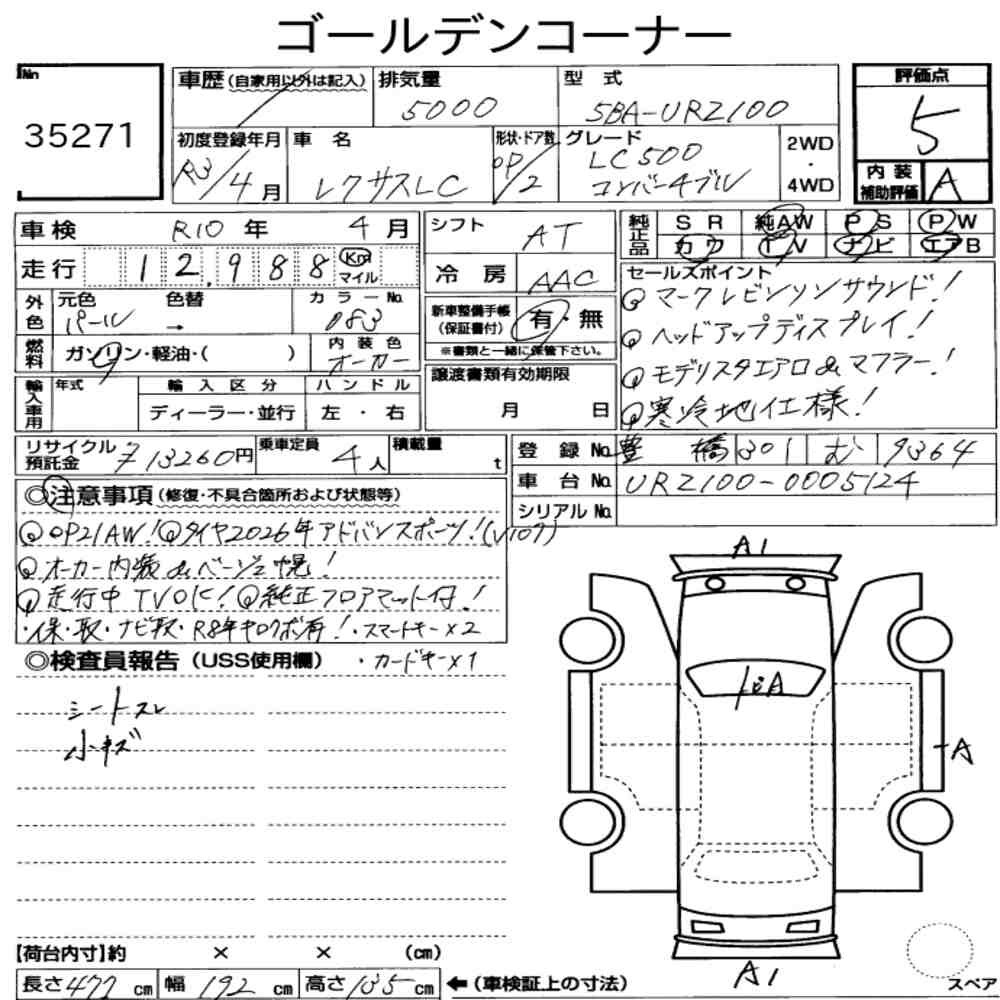 ゴールデンコーナー
No
35271
車歴(自家用以外は記入)
排気量
5000
型式
5BA-URZ100
評価点
5
内装
補助評価
A
初度登録年月
R3/4月
車名
レクサスLC
形状・ドア数
OP/2
グレード
LC500
コンバーチブル
2WD
・
4WD
車検 R10年 4月
走行 12,988 Km マイル
シフト AT
冷房 AAC
純正品
SR 純AW PS PW
カワ TV ナビ エアB
外色
元色 色替
パール →
カラーNo.
083
新車整備手帳
(保証書付)
有・無
※書類と一緒に保管下さい。
燃料
ガソリン・軽油・( )
内装色
オーカー
セールスポイント
◎マークレビンソンサウンド!
◎ヘッドアップディスプレイ!
◎モデリスタエアロ&マフラー!
◎寒冷地仕様!
輸入車用
年式
輸入区分
ディーラー・並行
ハンドル
左・右
譲渡書類有効期限
月 日
リサイクル
預託金
13260円
乗車定員
4人
積載量
t
登録No. 豊橋 301 む 9364
車台No. URZ100-0005124
シリアルNo.
◎注意事項(修復・不具合箇所および状態等)
◎OP21AW!◎タイヤ2026年アドバンスポーツ!(V107)
◎オーカー内装&ベージュ幌!
◎走行中TVOK!◎純正フロアマット付!
・保・取・ナビ取・R8年キロクボ有!・スマートキー×2
◎検査員報告(USS使用欄) ・カードキー×1
シートスレ
小キズ
A1
A
A
A1
【荷台内寸】約 × × (cm)
長さ477cm 幅192cm 高さ135cm
←(車検証上の寸法)
スペア